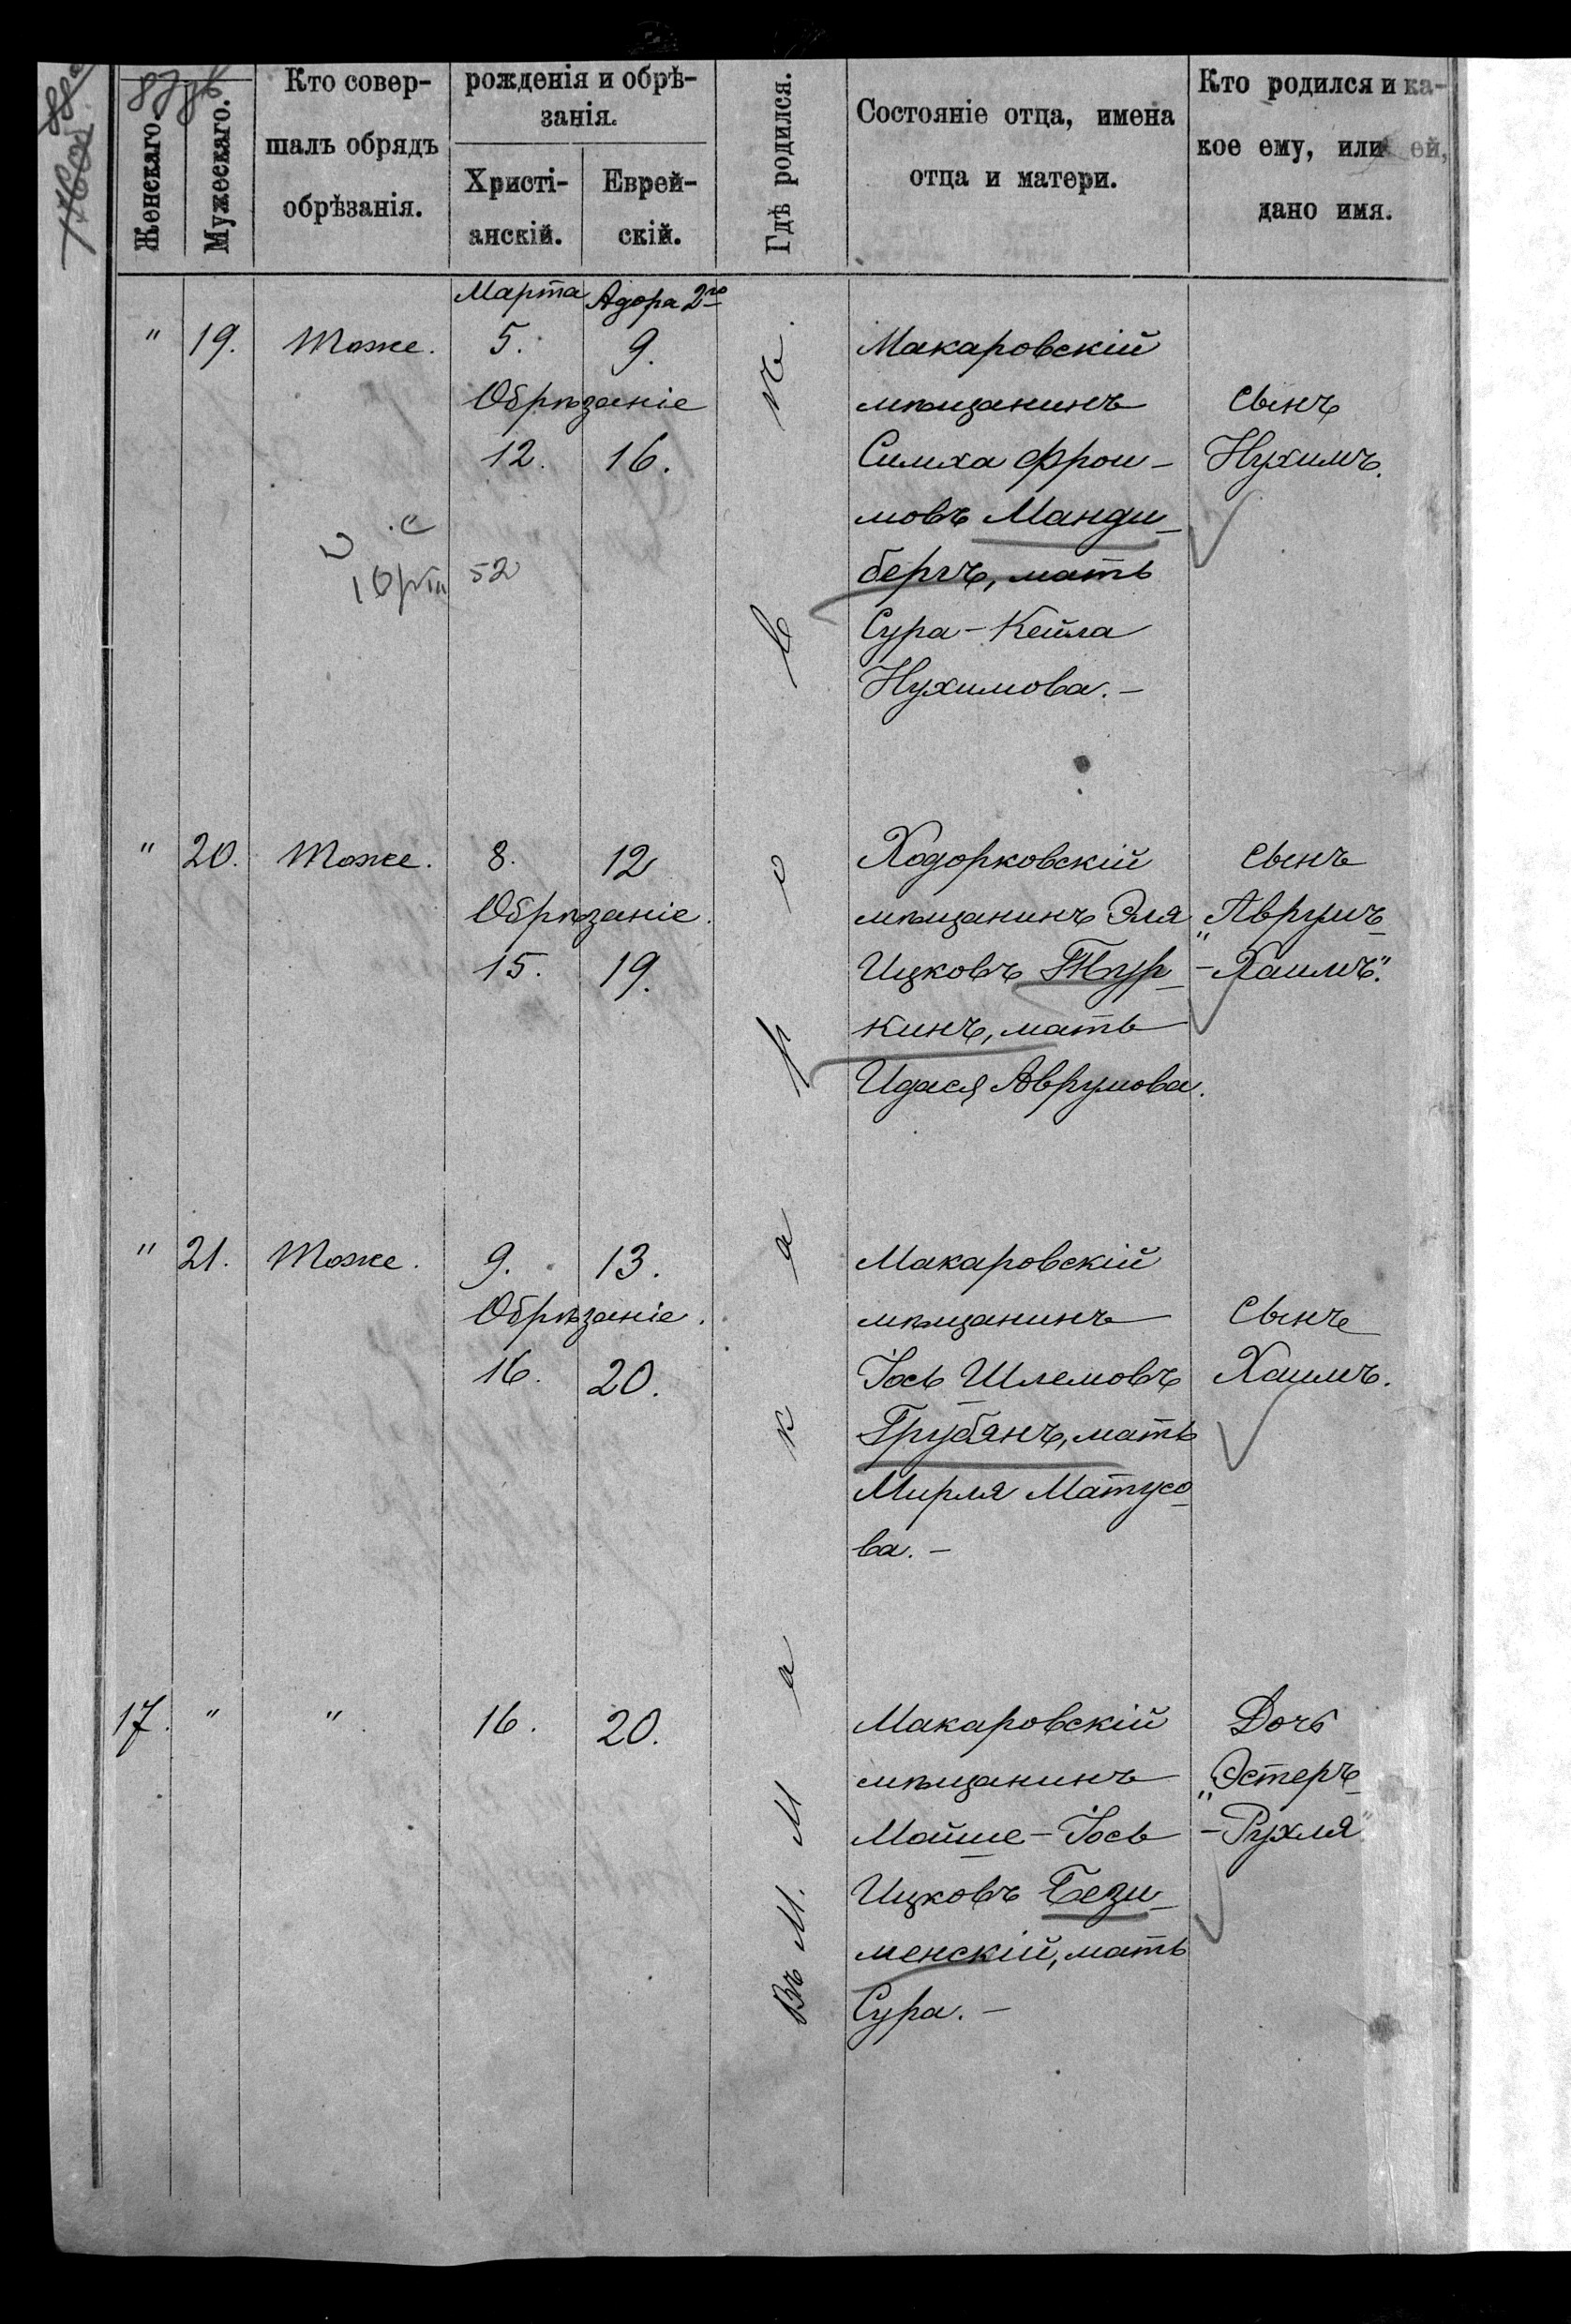 Женскаго.
Мужескаго.
Кто совер-
шалъ обрядъ
обрѣзанія.
рожденія и обрѣ-
занія.
Христі-
анскій.
Еврей-
скій.
Гдѣ родился.
Состояніе отца, имена
отца и матери.
Кто родился и ка-
кое ему, или ей,
дано имя.
Марта Адора 2го
" 19. Тоже. 5. 9. Макаровскій
Обрѣзаніе мѣщанинъ Сынъ
12. 16. Симха Фрои- Нухимъ.
мовъ Манди-
52 бергъ, мать
Сура-Кейла
Нухимова.-
" 20. Тоже. 8. 12 Ходорковскій Сынъ
Обрѣзаніе. мѣщанинъ Эля „Аврумъ-
15. 19. Ицковъ Тур- -Хаимъ".
кинъ, мать
Идася Аврумова.
" 21. Тоже. 9. 13. Макаровскій
Обрѣзаніе. мѣщанинъ Сынъ
16. 20. Іось Шлемовъ Хаимъ.
Грубянъ, мать
Мирля Матусо-
ва.-
17. " " 16. 20. Макаровскій Дочь
мѣщанинъ „Эстеръ-
Мойше-Іось -Рухля"
Ицковъ Бези-
менскій, мать
Сура.-
Въ М. Макаровѣ.